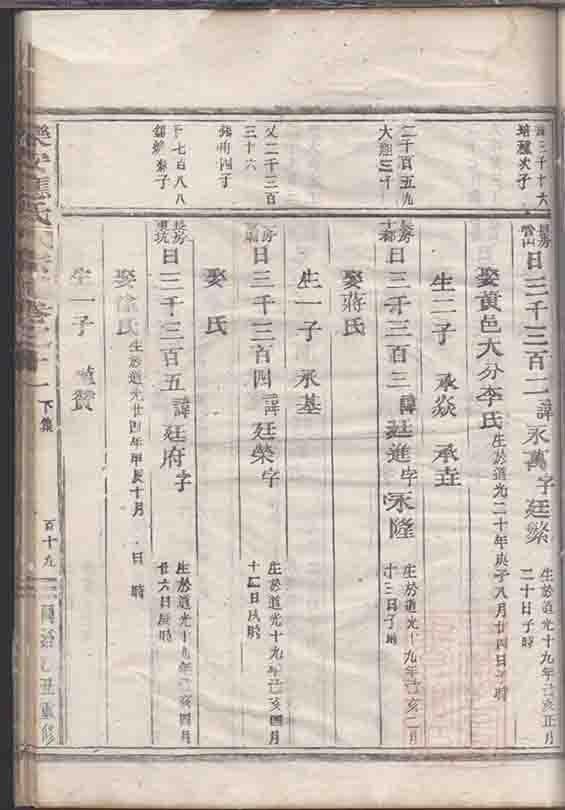 三千十六
培種次子
長房
雷山
日三千三百二諱永萬字廷繁
生於道光十九年己亥正月
二十日子時
娶黄邑大分李氏
生於道光二十年庚子八月廿四日 時
生二子 承焱 承垚
二千百五九
長房
十都
日三千三百三諱廷進字永隆
生於道光十九年己亥二月
十三日子時
娶蔣氏
生一子 承基
父二千三百
三十六
四子
房
日三千三百四諱廷榮字
生於道光十九年己亥四月
日戌時
娶 氏
七百八八
長房
坑
日三千三百五諱廷府字
生於道光十九年己亥四月
廿六日 時
娶徐氏
生於道光廿四年甲辰十月 日 時
生一子
下集
百十九
丑重修